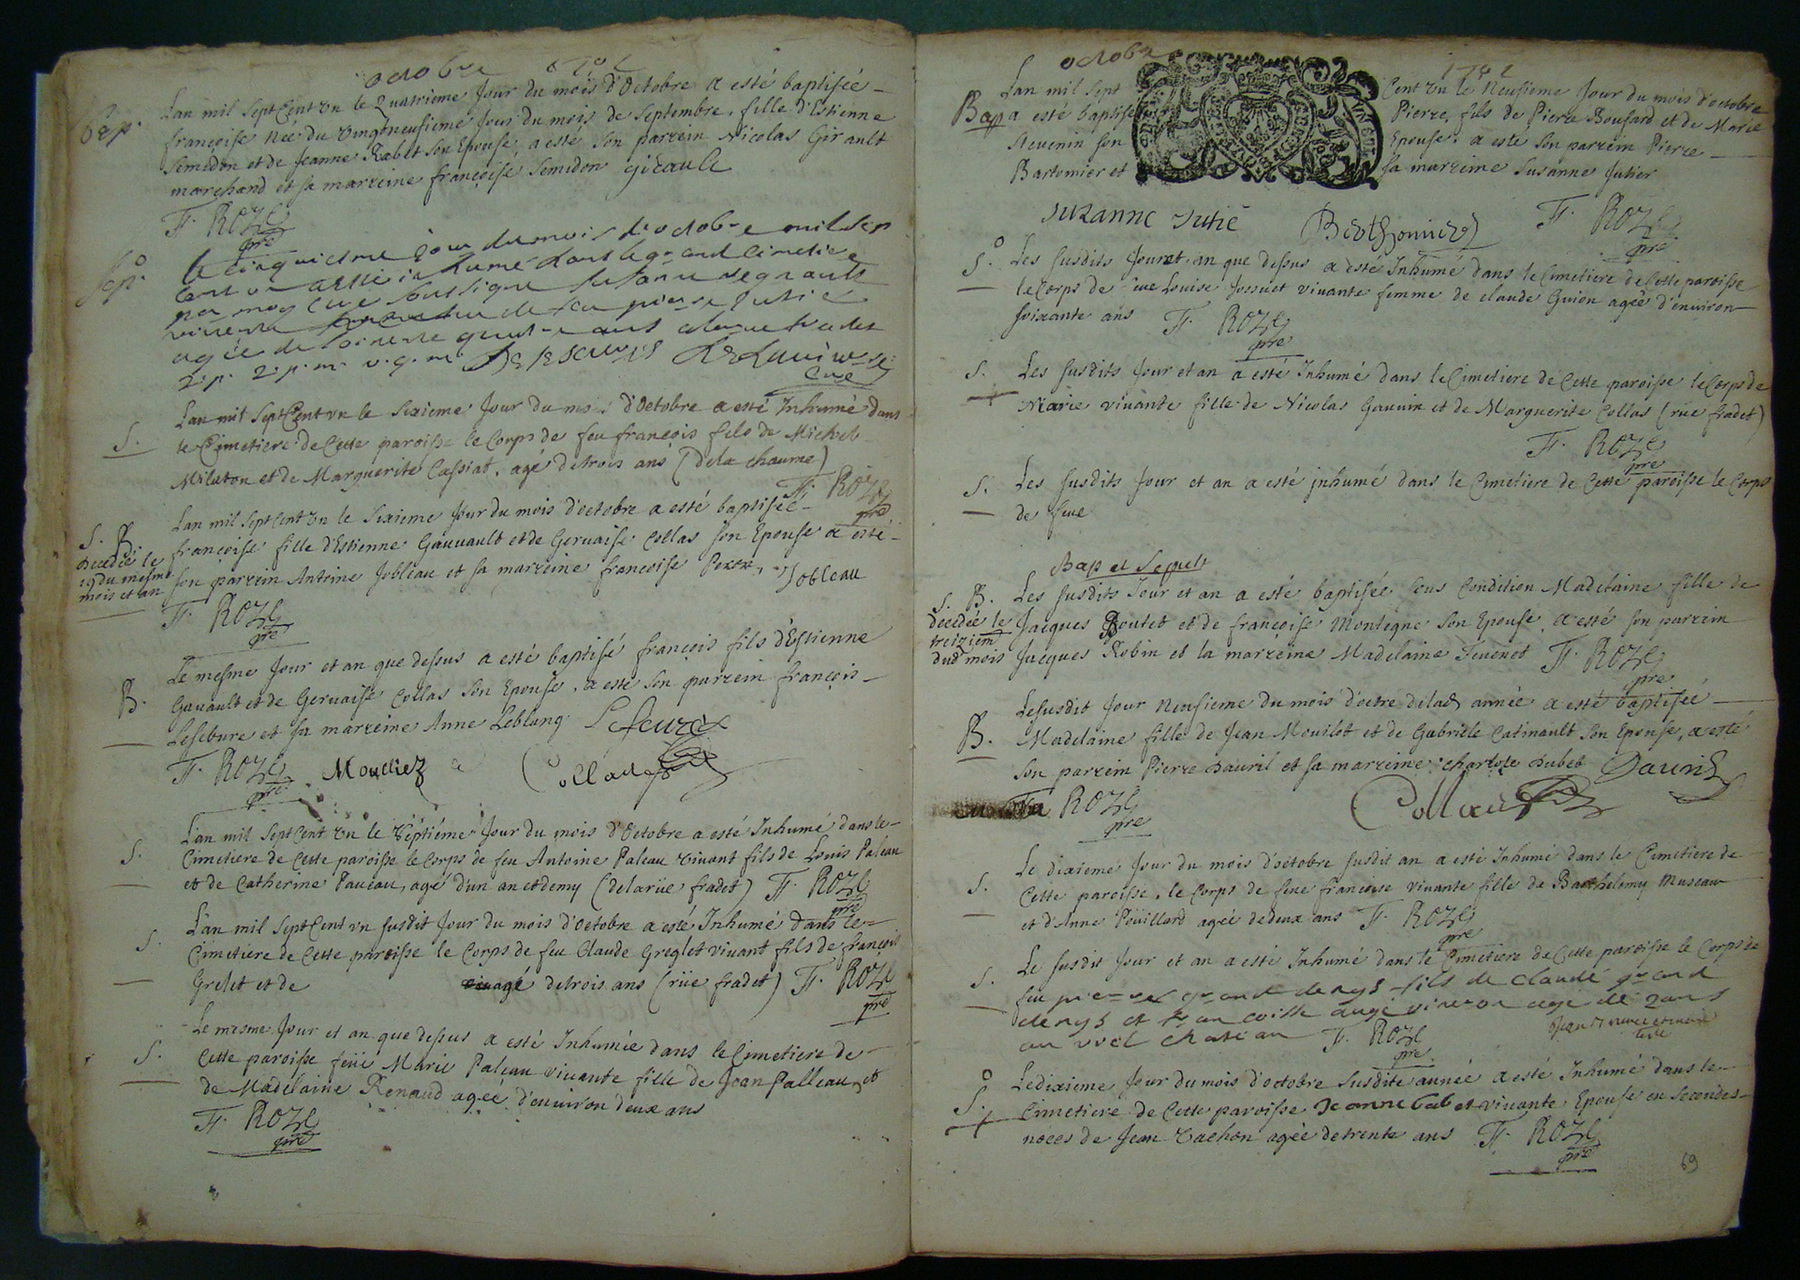 octobre 1701
Bap. Lan mil Sept Cent vn le Quatrieme Jour du mois d'Octobre a esté baptisée
françoise née du vingtneusieme Jour du mois de Septembre, fille d'Estienne
Semidon et de Jeanne Rabet son Epouse, a esté son parrein Nicolas Girault
marchand et sa marreine françoise Semidon girault
F. ROZE
pre
Sep. le cinquiesme jour du mois d'octobre mil sep
cent un a esté inhumé dans le grand cimetiere
par moy curé soussigné susanne regnault
vivente de feu pierre Jutié
agée de soixente ans
Curé
S. Lan mil Sept Cent vn le Sixieme Jour du mois d'Octobre a esté Inhumé dans
le Cimetiere de Cette paroisse le Corps de feu françois fils de Michel
Milaton et de Marguerite Cassiat, agé de trois ans (dela chaume)
F. ROZE
pre
Lan mil Sept Cent vn le Sixieme Jour du mois d'octobre a esté baptisée
S. B. françoise fille d'Estienne Gauuault et de Geruaise Collas son Epouse a esté
decedée le
19 du mesme
mois et an
son parrein Antoine Jobleau et sa marreine françoise Jobleau
F. ROZE
pre
Le mesme Jour et an que dessus a esté baptisé françois fils d'Estienne
B. Gauault et de Geruaise Collas son Epouse, a esté son parrein françois
Lefebure et sa marreine Anne Leblang Lefeure
F. ROZE Mouclier Collade
pre
Lan mil Sept Cent vn le Septiéme Jour du mois d'Octobre a esté Inhumé dans le
S. Cimetiere de Cette paroisse le Corps de feu Antoine Paleau viuant fils de Louis Paleau
et de Catherine Paueau, agé d'un an et demy (de la rüe fradet) F. ROZE
pre
Lan mil Sept Cent vn susdit Jour du mois d'Octobre a esté Inhumé dans le
S. Cimetiere de Cette paroisse le Corps de feu Claude Greglet viuant fils de françois
Grelet et de agé de trois ans (rüe fradet) F. ROZE
pre
Le mesme Jour et an que dessus a esté Inhumée dans le Cimetiere de
S. Cette paroisse feüe Marie Paleau viuante fille de Jean Palleau et
de Madelaine Renaud agée d'enuiron deux ans
F. ROZE
pre
octobre 1701
Lan mil Sept Cent vn le Neusieme Jour du mois d'octobre
Bap a esté baptisé Pierre, fils de Pierre Bousard et de Marie
Steuenin son Epouse, a esté son parrein Pierre
Bartomier et sa marreine Susanne Jutier
SUZANNE Jutié Berthommier F. ROZE
pre
S. Les susdits Jour et an que dessus a esté Inhumé dans le Cimetiere de Cette paroisse
le Corps de feue Louise Jossuet viuante femme de claude Guion agée d'enuiron
soixante ans F. ROZE
pre
S. Les susdits Jour et an a esté Inhumé dans le Cimetiere de Cette paroisse le Corps de
Marie viuante fille de Nicolas Gauuin et de Marguerite Collas (rüe fradet)
F. ROZE
pre
S. Les susdits Jour et an a esté jnhumé dans le Cimetiere de Cette paroisse le Corps
de feue
Bap et Sepult
S. B. Les susdits Jour et an a esté baptisée sous Condition Madelaine fille de
decedée le
treizieme
dud mois
Jacques Boutet et de françoise Montegne son Epouse, a esté son parrein
Jacques Robin et la marreine Madelaine Teuenet F. ROZE
pre
Le susdit Jour Neusieme du mois d'octre delad. année a esté baptisée
B. Madelaine fille de Jean Mouilot et de Gabriele Catinault son Epouse, a esté
son parrein Pierre Dauril et sa marreine charlote Dubet Dauril
F. ROZE
pre
S. Le dixieme Jour du mois d'octobre susdit an a esté Inhumé dans le Cimetiere de
Cette paroisse, le Corps de feue françoise viuante fille de Barthelemy Museau
et d'Anne Poüillard agée de deux ans F. ROZE
pre
S. Le susdit Jour et an a esté Inhumé dans le Cimetiere de Cette paroisse le Corps de
feu pierre grand denys fils de claude grand
denys et francoisse augé age de 2 ans
au viel chateau F. ROZE
pre
S. Le dixieme Jour du mois d'octobre susdite année a esté Inhumé dans le
Cimetiere de Cette paroisse Jeanne viuante Epouse en secondes
noces de Jean Vachon agée de trente ans F. ROZE
pre
69